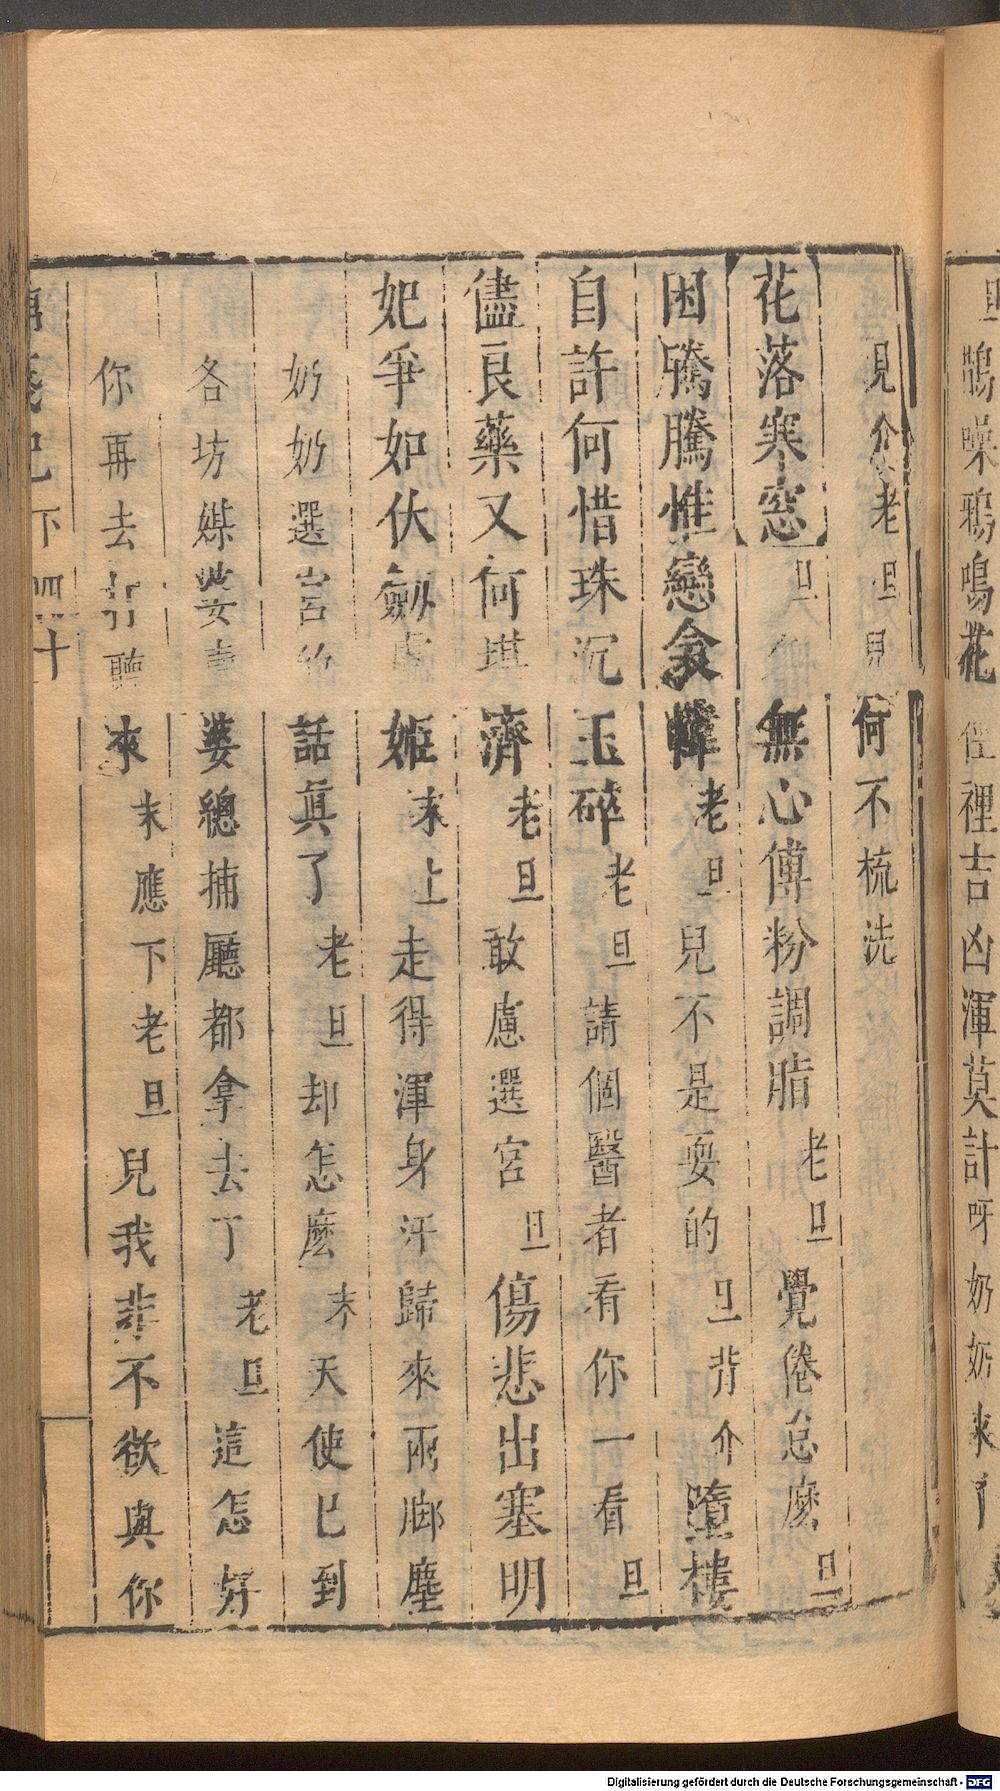 旦鵲噪鴉鳴花裡吉凶渾莫計呀奶奶來了
見介老旦兒何不梳洗
花落寒窓旦無心傅粉調脂老旦覺倦怎麽旦
困騰騰惟戀衾幃老旦兒不是耍的旦背介墮樓
自許何惜珠沉玉碎老旦請個醫者看你一看旦
儘良藥又何堪濟老旦敢慮選宮旦傷悲出塞明
妃爭如伏劒虞姬末上走得渾身汗歸來兩廊塵
奶奶選宮的話眞了老旦却怎麽末天使已到
各坊媒婆總捕廳都拿去了老旦這怎好
你再去打聽來末應下老旦兒我非不欲與你
記下 四十
Digitalisierung gefördert durch die Deutsche Forschungsgemeinschaft - DFG